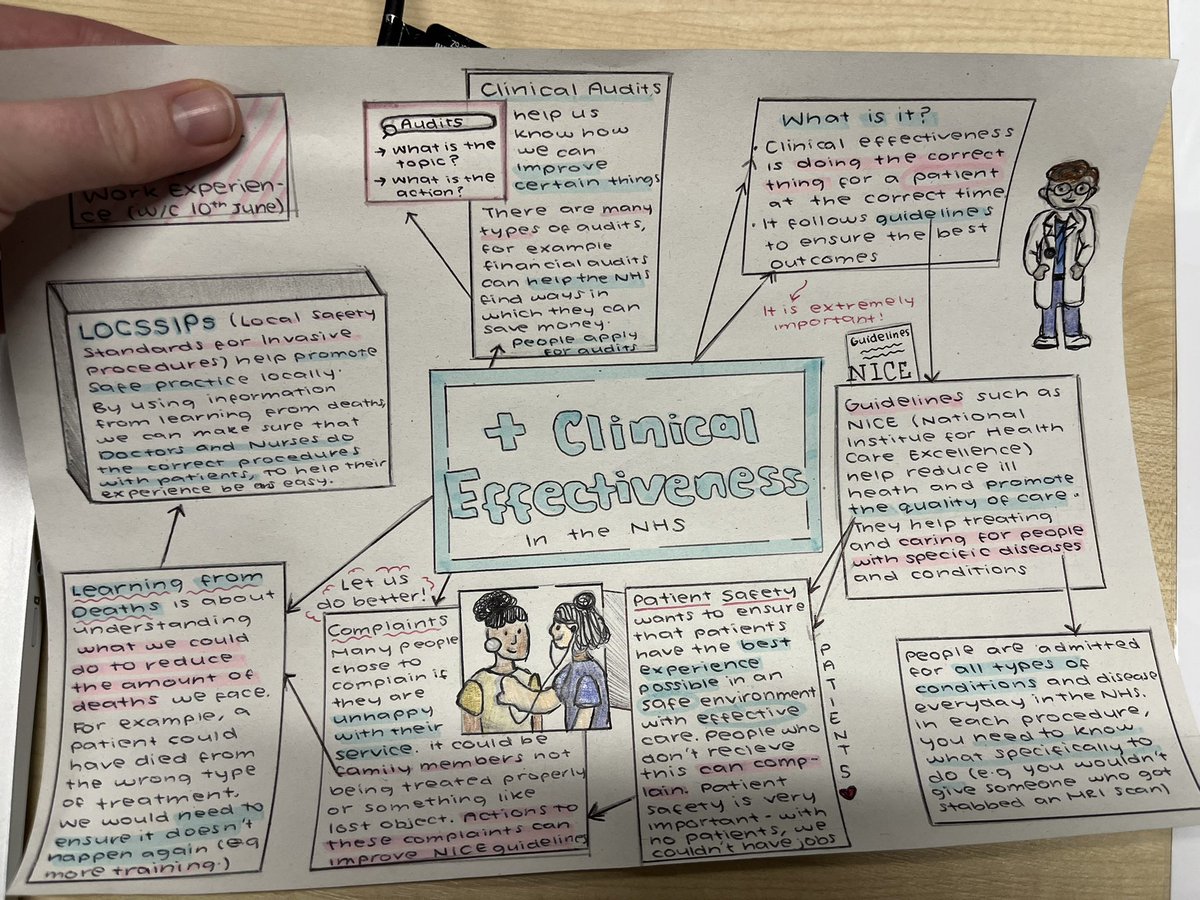 Work Experien-
ce (w/c 10th June)
Audits
→ what is the
topic?
→ what is the
action?
Clinical Audits
help us
know how
we can
improve
certain things
There are many
types of audits,
for example
financial audits
can help the NHS
find ways in
which they can
save money.
people apply
for audits
What is it?
• Clinical effectiveness
is doing the correct
thing for a patient
at the correct time
• It follows guidelines
to ensure the best
outcomes
It is extremely
important!
LOCSSIPs (Local Safety
Standards for Invasive
Procedures) help promote
safe practice locally.
By using information
from learning from deaths,
we can make sure that
Doctors and Nurses do
the correct procedures
with patients, to help their
experience be as easy.
+ Clinical
Effectiveness
In the NHS
Guidelines
NICE
Guidelines such as
NICE (National
Institue for Health
Care Excellence)
help reduce ill
heath and promote
the quality of care.
They help treating
and caring for people
with specific diseases
and conditions
Learning from
Deaths is about
understanding
what we could
do to reduce
the amount of
deaths we face.
For example, a
patient could
have died from
the wrong type
of treatment.
We would need to
ensure it doesn't
happen again (eg
more training.)
Let us
do better!
Complaints
Many people
chose to
complain if
they are
unhappy
with their
service. it could be
family members not
being treated properly
or something like
lost object. Actions to
these complaints can
improve NICE guidelines
Patient Safety
wants to ensure
that patients
have the best
experience
possible in an
safe environment
with effective
care. People who
don't recieve
this can comp-
lain. Patient
safety is very
important - with
no patients, we
couldn't have jobs
PATIENTS
people are admitted
for all types of
conditions and disease
everyday in the NHS.
in each procedure,
you need to know
what specifically to
do (e.g you wouldn't
give someone who got
stabbed an MRI scan)